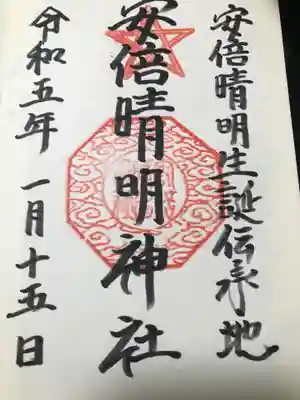 安倍晴明生誕伝承地
安倍晴明神社
令和五年一月十五日